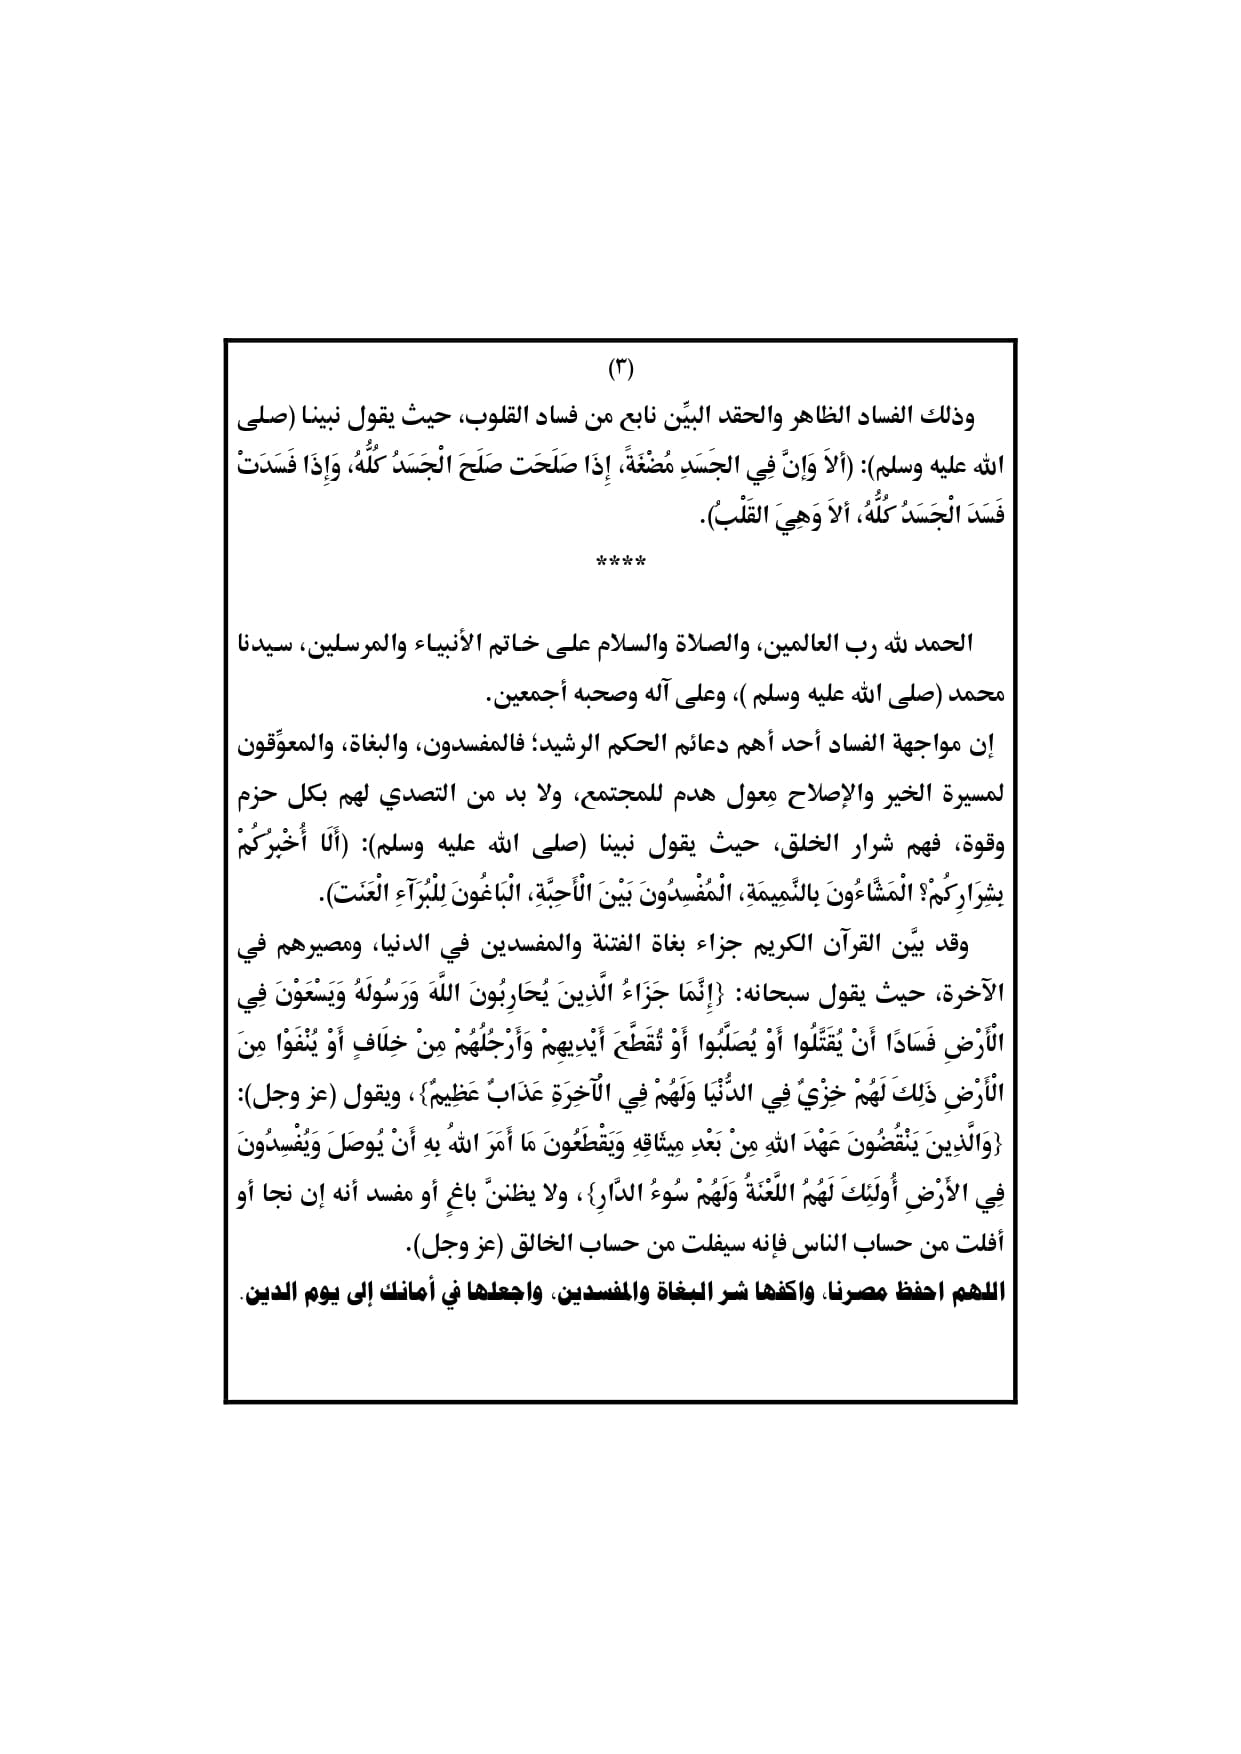 (٣)
وذلك الفساد الظاهر والحقد البيِّن نابع من فساد القلوب، حيث يقول نبينا (صلى
الله عليه وسلم): (ألاَ وَإِنَّ فِي الجَسَدِ مُضْغَةً، إِذَا صَلَحَت صَلَحَ الْجَسَدُ كُلُّهُ، وَإِذَا فَسَدَتْ
فَسَدَ الْجَسَدُ كُلُّهُ، ألاَ وَهِيَ القَلْبُ).
****
الحمد لله رب العالمين، والصلاة والسلام على خاتم الأنبياء والمرسلين، سيدنا
محمد (صلى الله عليه وسلم )، وعلى آله وصحبه أجمعين.
إن مواجهة الفساد أحد أهم دعائم الحكم الرشيد؛ فالمفسدون، والبغاة، والمعوِّقون
لمسيرة الخير والإصلاح مِعول هدم للمجتمع، ولا بد من التصدي لهم بكل حزم
وقوة، فهم شرار الخلق، حيث يقول نبينا (صلى الله عليه وسلم): (أَلَا أُخْبِرُكُمْ
بِشِرَارِكُمْ؟ الْمَشَّاءُونَ بِالنَّمِيمَةِ، الْمُفْسِدُونَ بَيْنَ الْأَحِبَّةِ، الْبَاغُونَ لِلْبُرَآءِ الْعَنَتَ).
وقد بيَّن القرآن الكريم جزاء بغاة الفتنة والمفسدين في الدنيا، ومصيرهم في
الآخرة، حيث يقول سبحانه: {إِنَّمَا جَزَاءُ الَّذِينَ يُحَارِبُونَ اللَّهَ وَرَسُولَهُ وَيَسْعَوْنَ فِي
الْأَرْضِ فَسَادًا أَنْ يُقَتَّلُوا أَوْ يُصَلَّبُوا أَوْ تُقَطَّعَ أَيْدِيهِمْ وَأَرْجُلُهُمْ مِنْ خِلَافٍ أَوْ يُنْفَوْا مِنَ
الْأَرْضِ ذَلِكَ لَهُمْ خِزْيٌ فِي الدُّنْيَا وَلَهُمْ فِي الْآخِرَةِ عَذَابٌ عَظِيمٌ}، ويقول (عز وجل):
{وَالَّذِينَ يَنْقُضُونَ عَهْدَ اللهِ مِنْ بَعْدِ مِيثَاقِهِ وَيَقْطَعُونَ مَا أَمَرَ اللهُ بِهِ أَنْ يُوصَلَ وَيُفْسِدُونَ
فِي الأَرْضِ أُولَئِكَ لَهُمُ اللَّعْنَةُ وَلَهُمْ سُوءُ الدَّارِ}، ولا يظننَّ باغٍ أو مفسد أنه إن نجا أو
أفلت من حساب الناس فإنه سيفلت من حساب الخالق (عز وجل).
اللهم احفظ مصرنا، واكفها شر البغاة والمفسدين، واجعلها في أمانك إلى يوم الدين.